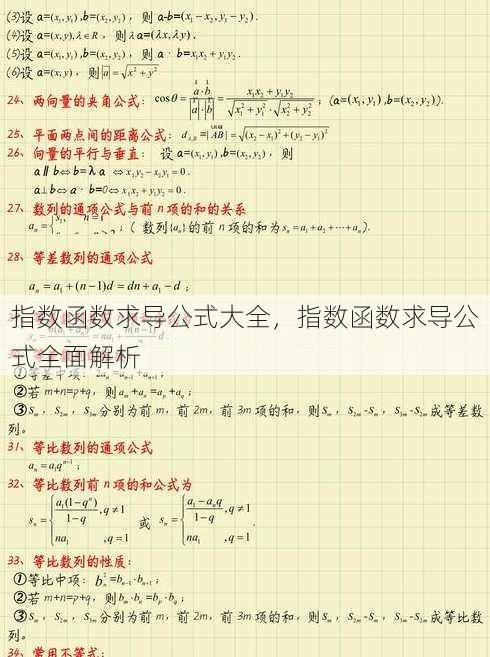 (3)设 a=(x₁,y₁),b=(x₂,y₂)，则 a-b=(x₁-x₂,y₁-y₂).
(4)设 a=(x,y),λ∈R，则λa=(λx,λy).
(5)设 a=(x₁,y₁),b=(x₂,y₂)，则 a·b=x₁x₂+y₁y₂.
(6)设 a=(x,y)，则|a|=√(x²+y²)
24、两向量的夹角公式：cosθ=(a·b)/(|a|·|b|)=(x₁x₂+y₁y₂)/(√(x₁²+y₁²)·√(x₂²+y₂²))；(a=(x₁,y₁),b=(x₂,y₂)).
25、平面两点间的距离公式：d_{A,B}=|AB|=√((x₂-x₁)²+(y₂-y₁)²)
26、向量的平行与垂直：设 a=(x₁,y₁),b=(x₂,y₂)，则
a∥b⇔b=λa ⇔x₁y₂-x₂y₁=0.
a⊥b⇔a·b=0⇔x₁x₂+y₁y₂=0.
27、数列的通项公式与前 n 项的和的关系
aₙ={s₁, n=1；(数列{aₙ}的前 n 项的和为sₙ=a₁+a₂+⋯+aₙ).
28、等差数列的通项公式
aₙ=a₁+(n-1)d=dn+a₁-d；
指数函数求导公式大全，指数函数求导公
式全面解析
①等差中项：
②若 m+n=p+q，则aₘ+aₙ=aₚ+a_q；
③Sₘ，S₂ₘ，S₃ₘ分别为前 m，前 2m，前 3m 项的和，则Sₘ，S₂ₘ-Sₘ，S₃ₘ-S₂ₘ成等差数
列。
31、等比数列的通项公式
aₙ=a₁qⁿ⁻¹；
32、等比数列前 n 项的和公式为
sₙ={a₁(1-qⁿ)/(1-q),q≠1 na₁,q=1 或 sₙ={(a₁-aₙq)/(1-q),q≠1 na₁,q=1.
33、等比数列的性质：
①等比中项：bₙ²=bₙ₋₁·bₙ₊₁；
②若 m+n=p+q，则bₘ·bₙ=bₚ·b_q；
③Sₘ，S₂ₘ，S₃ₘ分别为前 m，前 2m，前 3m 项的和，则Sₘ，S₂ₘ-Sₘ，S₃ₘ-S₂ₘ成等比数
列。
34、常用不等式：